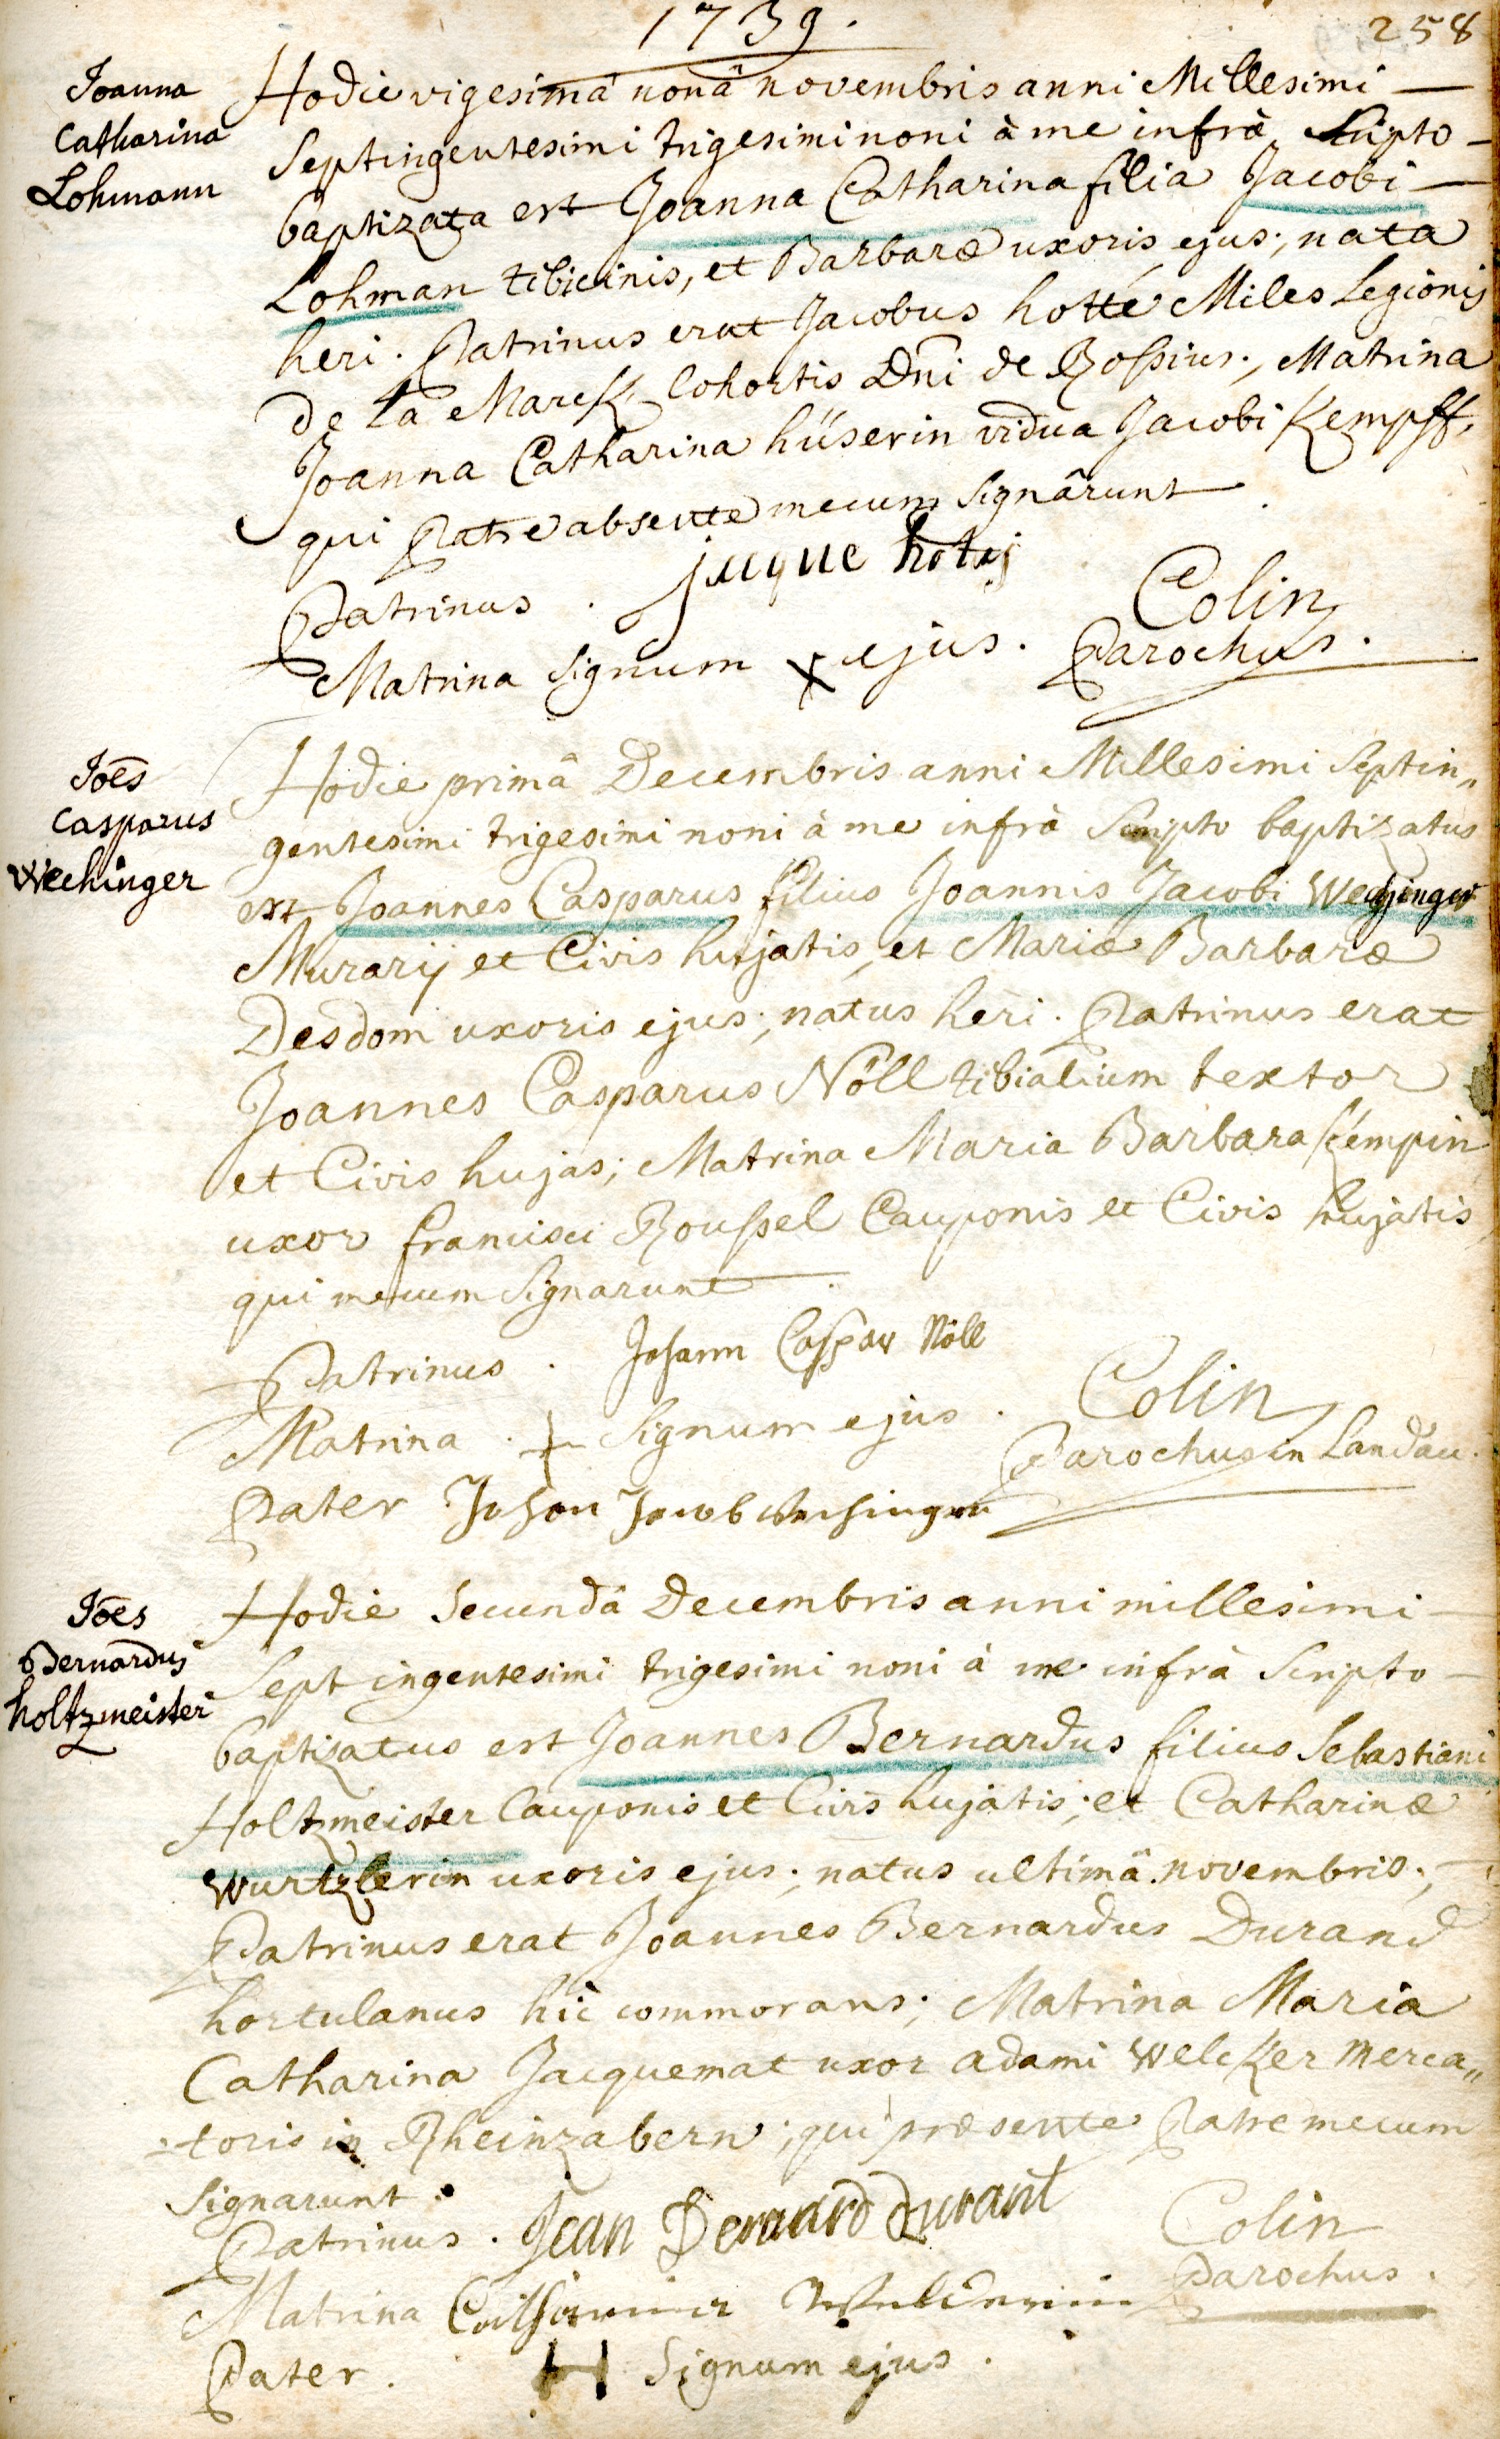 1739.
258
Joanna
Catharina
Lohmann
Hodie vigesimâ nonâ novembris anni Millesimi —
Septingentesimi trigesimi noni à me infrà Scripto —
baptizata est Joanna Catharina filia Jacobi —
Lohman tibicinis, et Barbaræ uxoris ejus; nata
heri. Patrinus erat Jacobus hotté Miles Legionis
de La Marck Cohortis Dn̄i de Rossius; Matrina
Joanna Catharina hüserin vidua Jacobi Kempff,
qui Patre absente mecum Signârunt
Patrinus . jaque hotej
Matrina Signum x ejus .
Colin
Parochus.
Jōes
Casparus
Wechinger
Hodie primâ Decembris anni Millesimi Septin„
gentesimi trigesimi noni à me infrà Scripto baptizatus
est Joannes Casparus filius Joannis Jacobi Wechinger
Murarij et Civis hujatis, et Mariæ Barbaræ
Desdom uxoris ejus; natus heri. Patrinus erat
Joannes Casparus Nöll tibialium textor
et Civis hujas; Matrina Maria Barbara Kempin
uxor francisci Roussel Cauponis et Civis hujatis
qui mecum Signarunt
Patrinus . Johann Caspar Nöll
Matrina . + Signum ejus .
Colin
Parochus in Landau.
Pater Johan Jacob Wechinger
Jōes
Bernardus
holtzmeister
Hodie Secundâ Decembris anni millesimi —
Septingentesimi trigesimi noni à me infrà Scripto —
baptizatus est Joannes Bernardus filius Sebastiani
Holtzmeister Cauponis et Civis hujatis; et Catharinæ
Wurtzlerin uxoris ejus; natus ultimâ novembris; —
Patrinus erat Joannes Bernardus Durand
hortulanus hic commorans; Matrina Maria
Catharina Jacquemat uxor adami Welcker Merca„
toris in Rheinzabern; qui præsente Patre mecum
Signarunt .
Patrinus . Jean Bernard Durant
Matrina
Colin
Parochus .
Pater . H Signum ejus .